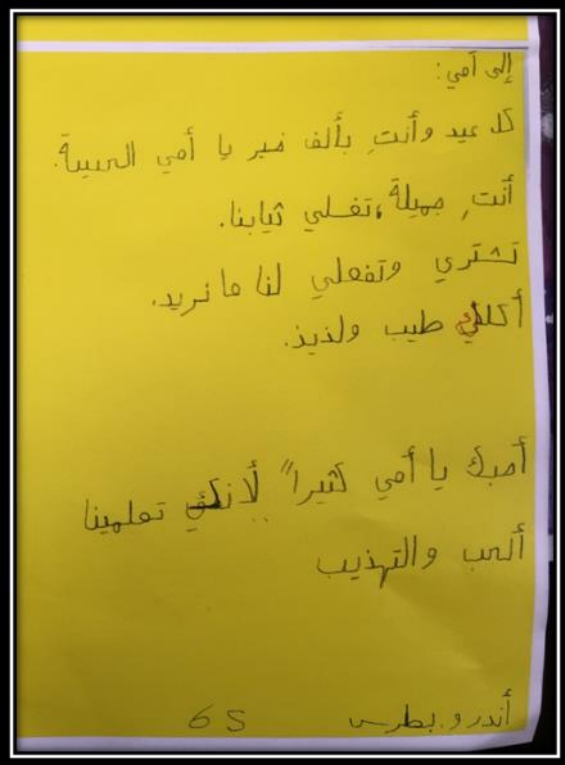 إلى أمي:
كل عيد وأنتِ بألف خير يا أمي الحبيبة.
أنتِ جميلة، تغسلي ثيابنا.
تشتري وتفعلي لنا ما نريد.
أكلكِ طيب ولذيذ.
أحبك يا أمي كثيراً لأنكِ تعلمينا
ألحب والتهذيب
أندرو بطرس 6S